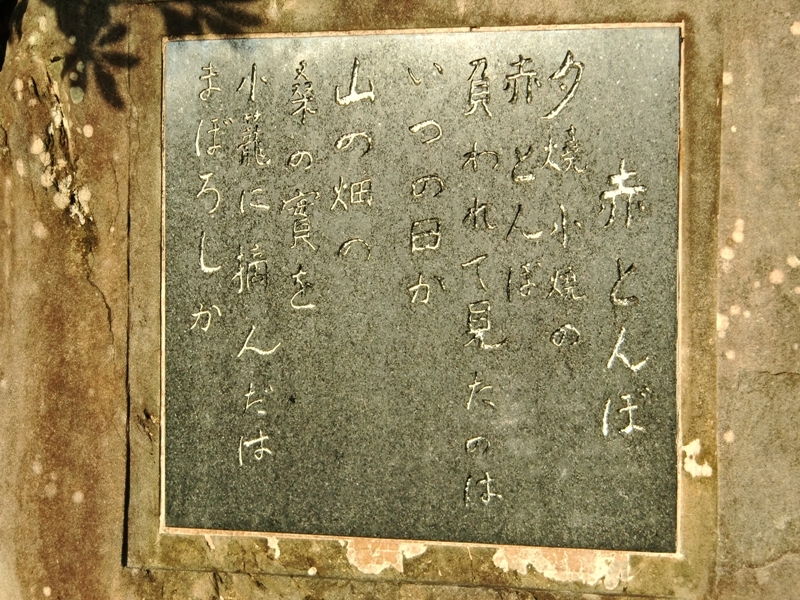 赤とんぼ
夕燒小燒の
赤とんぼ
負われて見たのは
いつの日か
山の畑の
桑の實を
小籠に摘んだは
まぼろしか